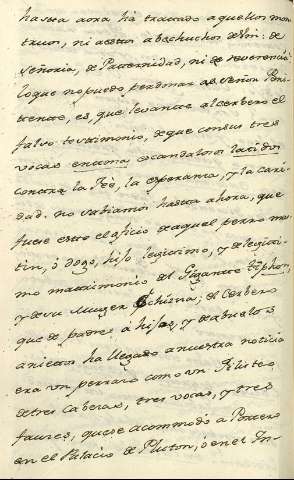 hasta aora ha tratado aquellos mons
truos, ni a estos abechuchos de Vm: de
Señoria, de Paternidad, ni de reverencia
lo que no puedo perdonar a el Señor Peni
tente, es, que levante al cerbero el
falso testimonio, de que con sus tres
vocas escandalosos latidos
contra la Fè, la esperanza, y la cari
dad. no sabiamos hasta ahora, que
fuese este el oficio de aquel perro mas
tin, ò dogo, hijo legitimo, y de legiti
mo matrimonio del Gigante Tiphon,
y de su Muger Echidna; el Cerbero
que de padres á hijos, y de abuelos
a nietos ha llegado a nuestra noticia
era un perrazo como un Filisteo
de tres cabezas, tres vocas, y tres
fauces, que se acommodò a Portero
en el Palacio de Pluton, ò en el In-